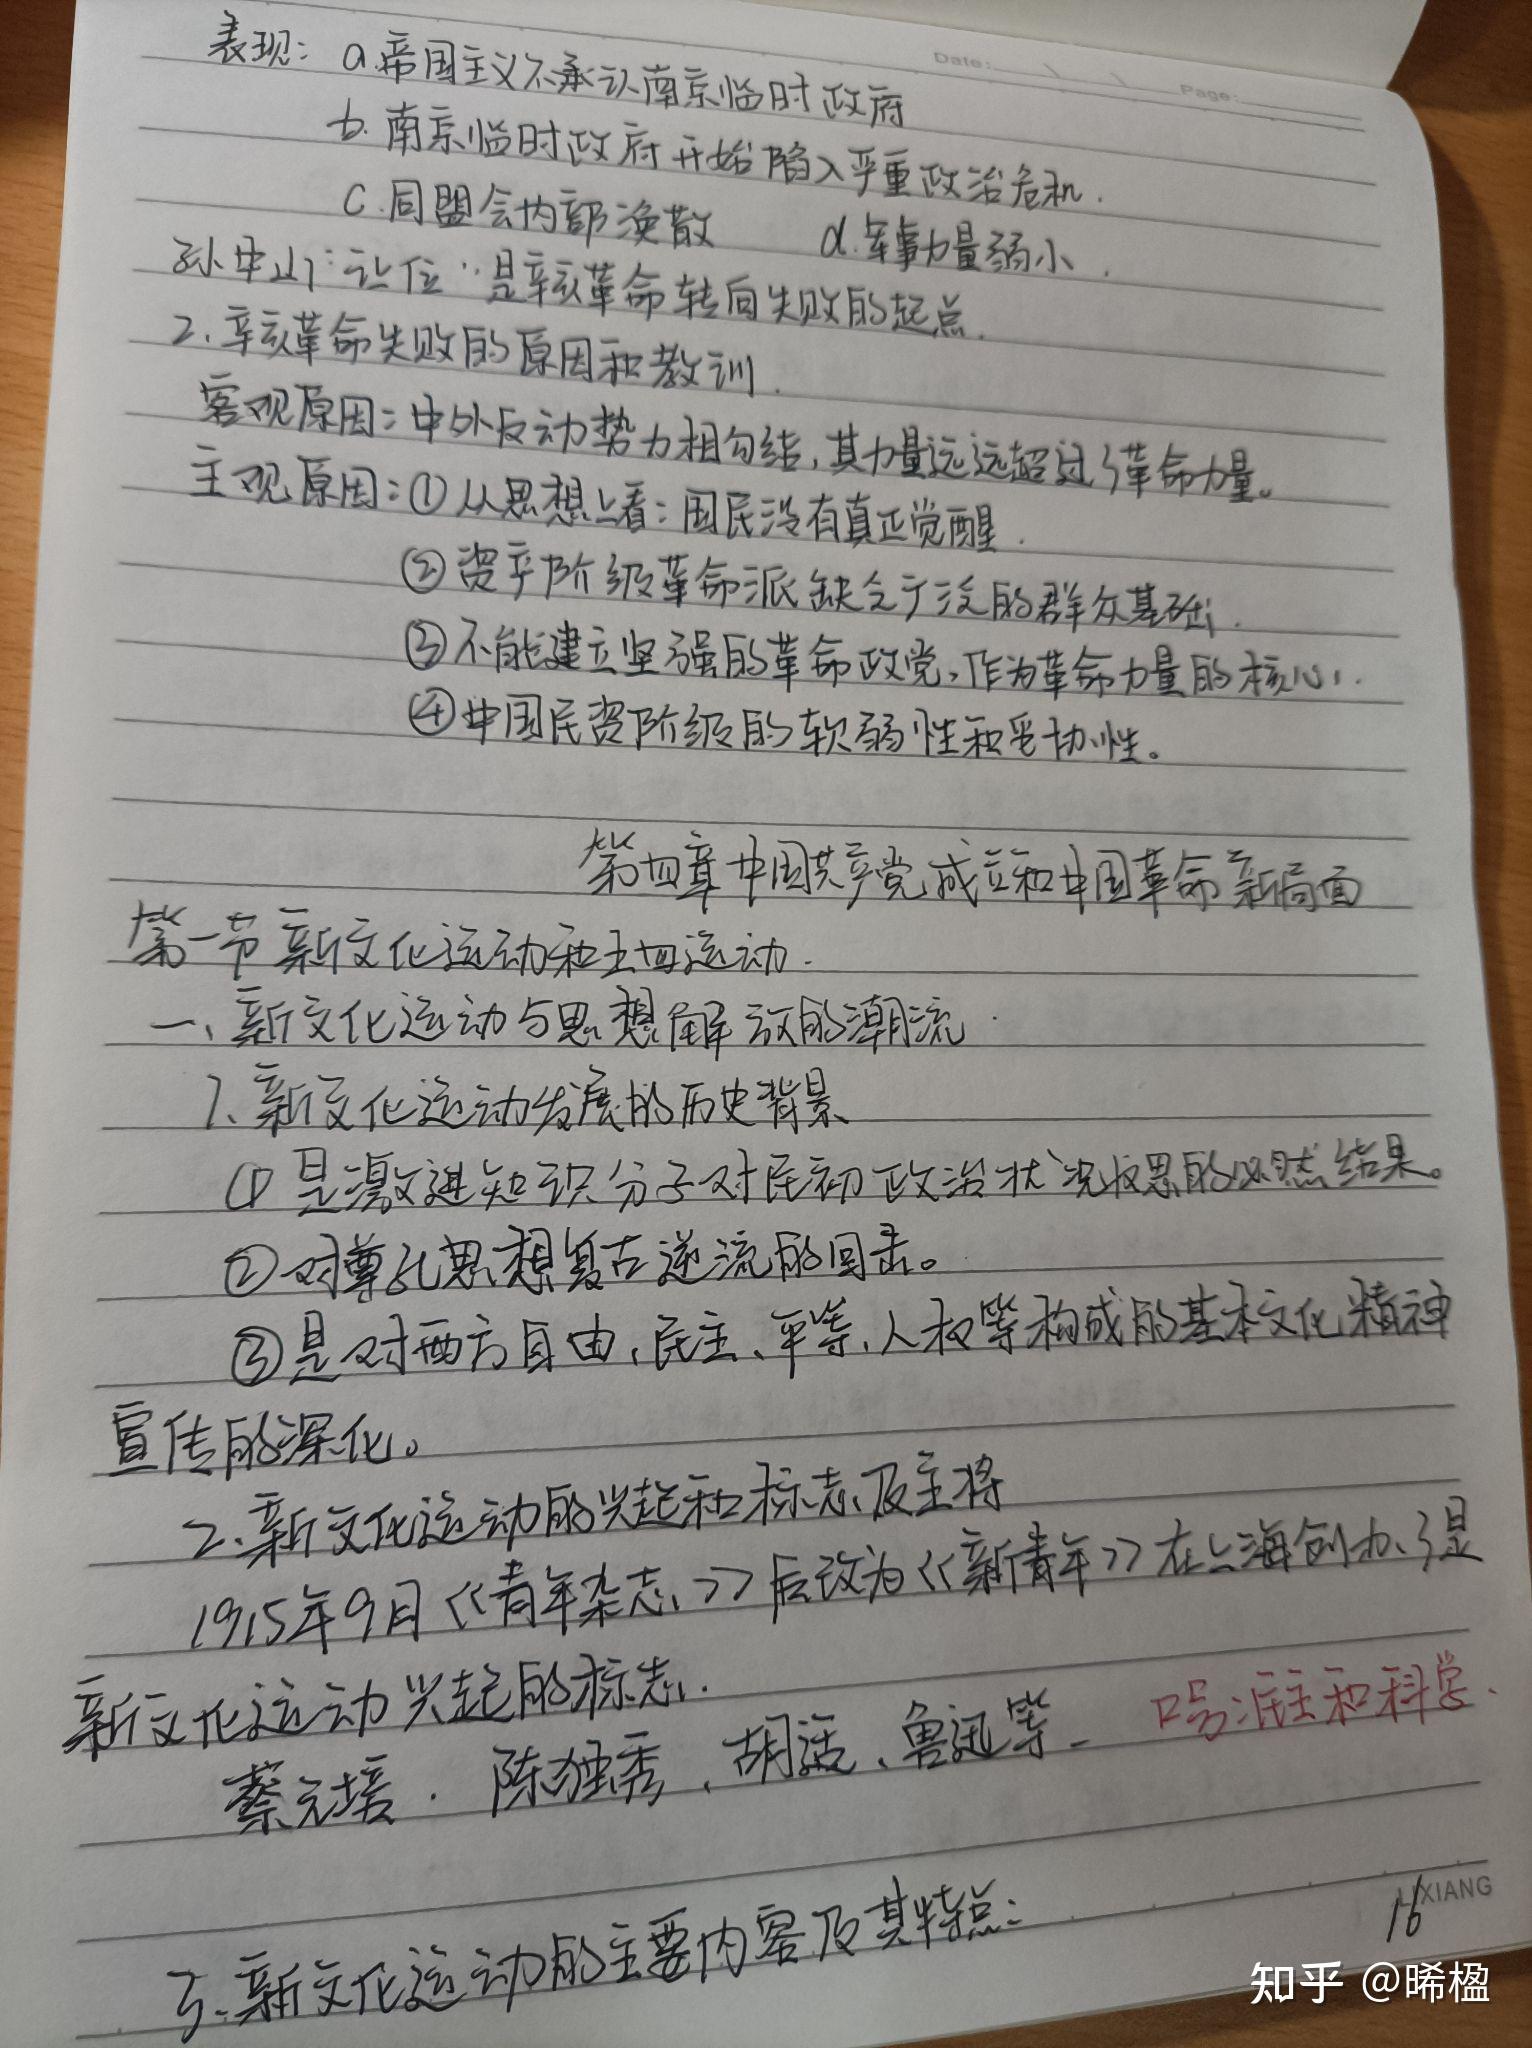 Date: Page:
表现: a.帝国主义不承认南京临时政府
b.南京临时政府开始陷入严重政治危机.
c.同盟会内部涣散 d.军事力量弱小.
孙中山“让位”是辛亥革命转向失败的起点.
2.辛亥革命失败的原因和教训.
客观原因:中外反动势力相勾结,其力量远远超过了革命力量。
主观原因:①从思想上看:国民没有真正觉醒.
②资产阶级革命派缺乏广泛的群众基础.
③不能建立坚强的革命政党,作为革命力量的核心.
④中国民资阶级的软弱性和妥协性。
第四章中国共产党成立和中国革命新局面
第一节新文化运动和五四运动.
一、新文化运动与思想解放的潮流.
1、新文化运动发展的历史背景
①是激进知识分子对民初政治状况反思的必然结果。
②对尊孔思想复古逆流的回击。
③是对西方自由、民主、平等、人权等构成的基本文化精神
宣传的深化。
2.新文化运动的兴起和标志及主将
1915年9月《青年杂志》后改为《新青年》在上海创办、是
新文化运动兴起的标志.
蔡元培. 陈独秀、胡适、鲁迅等. 口号:民主和科学.
3.新文化运动的主要内容及其特点:
LIXIANG
16
知乎 @晞楹